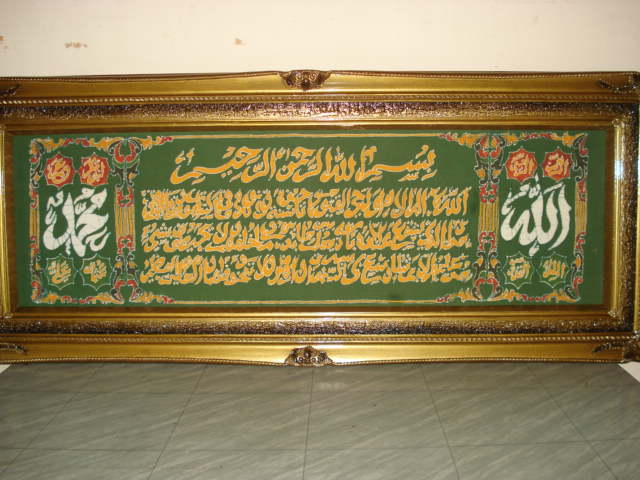 الله
بسم الله الرحمن الرحيم
الله لا اله الا هو الحي القيوم لا تأخذه سنة ولا نوم له ما في السموات وما في
الارض من ذا الذي يشفع عنده الا باذنه يعلم ما بين ايديهم وما خلفهم ولا يحيطون بشيء
من علمه الا بما شاء وسع كرسيه السموات والارض ولا يؤده حفظهما وهو العلي العظيم
محمد